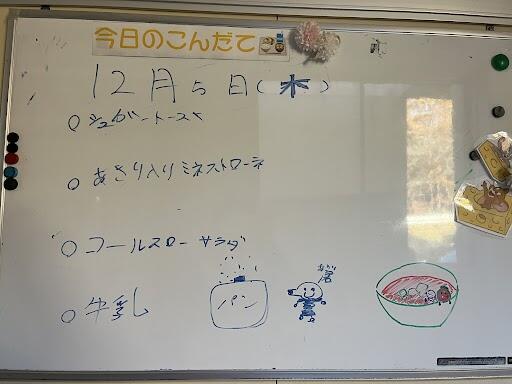 今日のこんだて
12月5日(木)
○シュガートースト
○あさり入りミネストローネ
○コールスローサラダ
○牛乳
パン